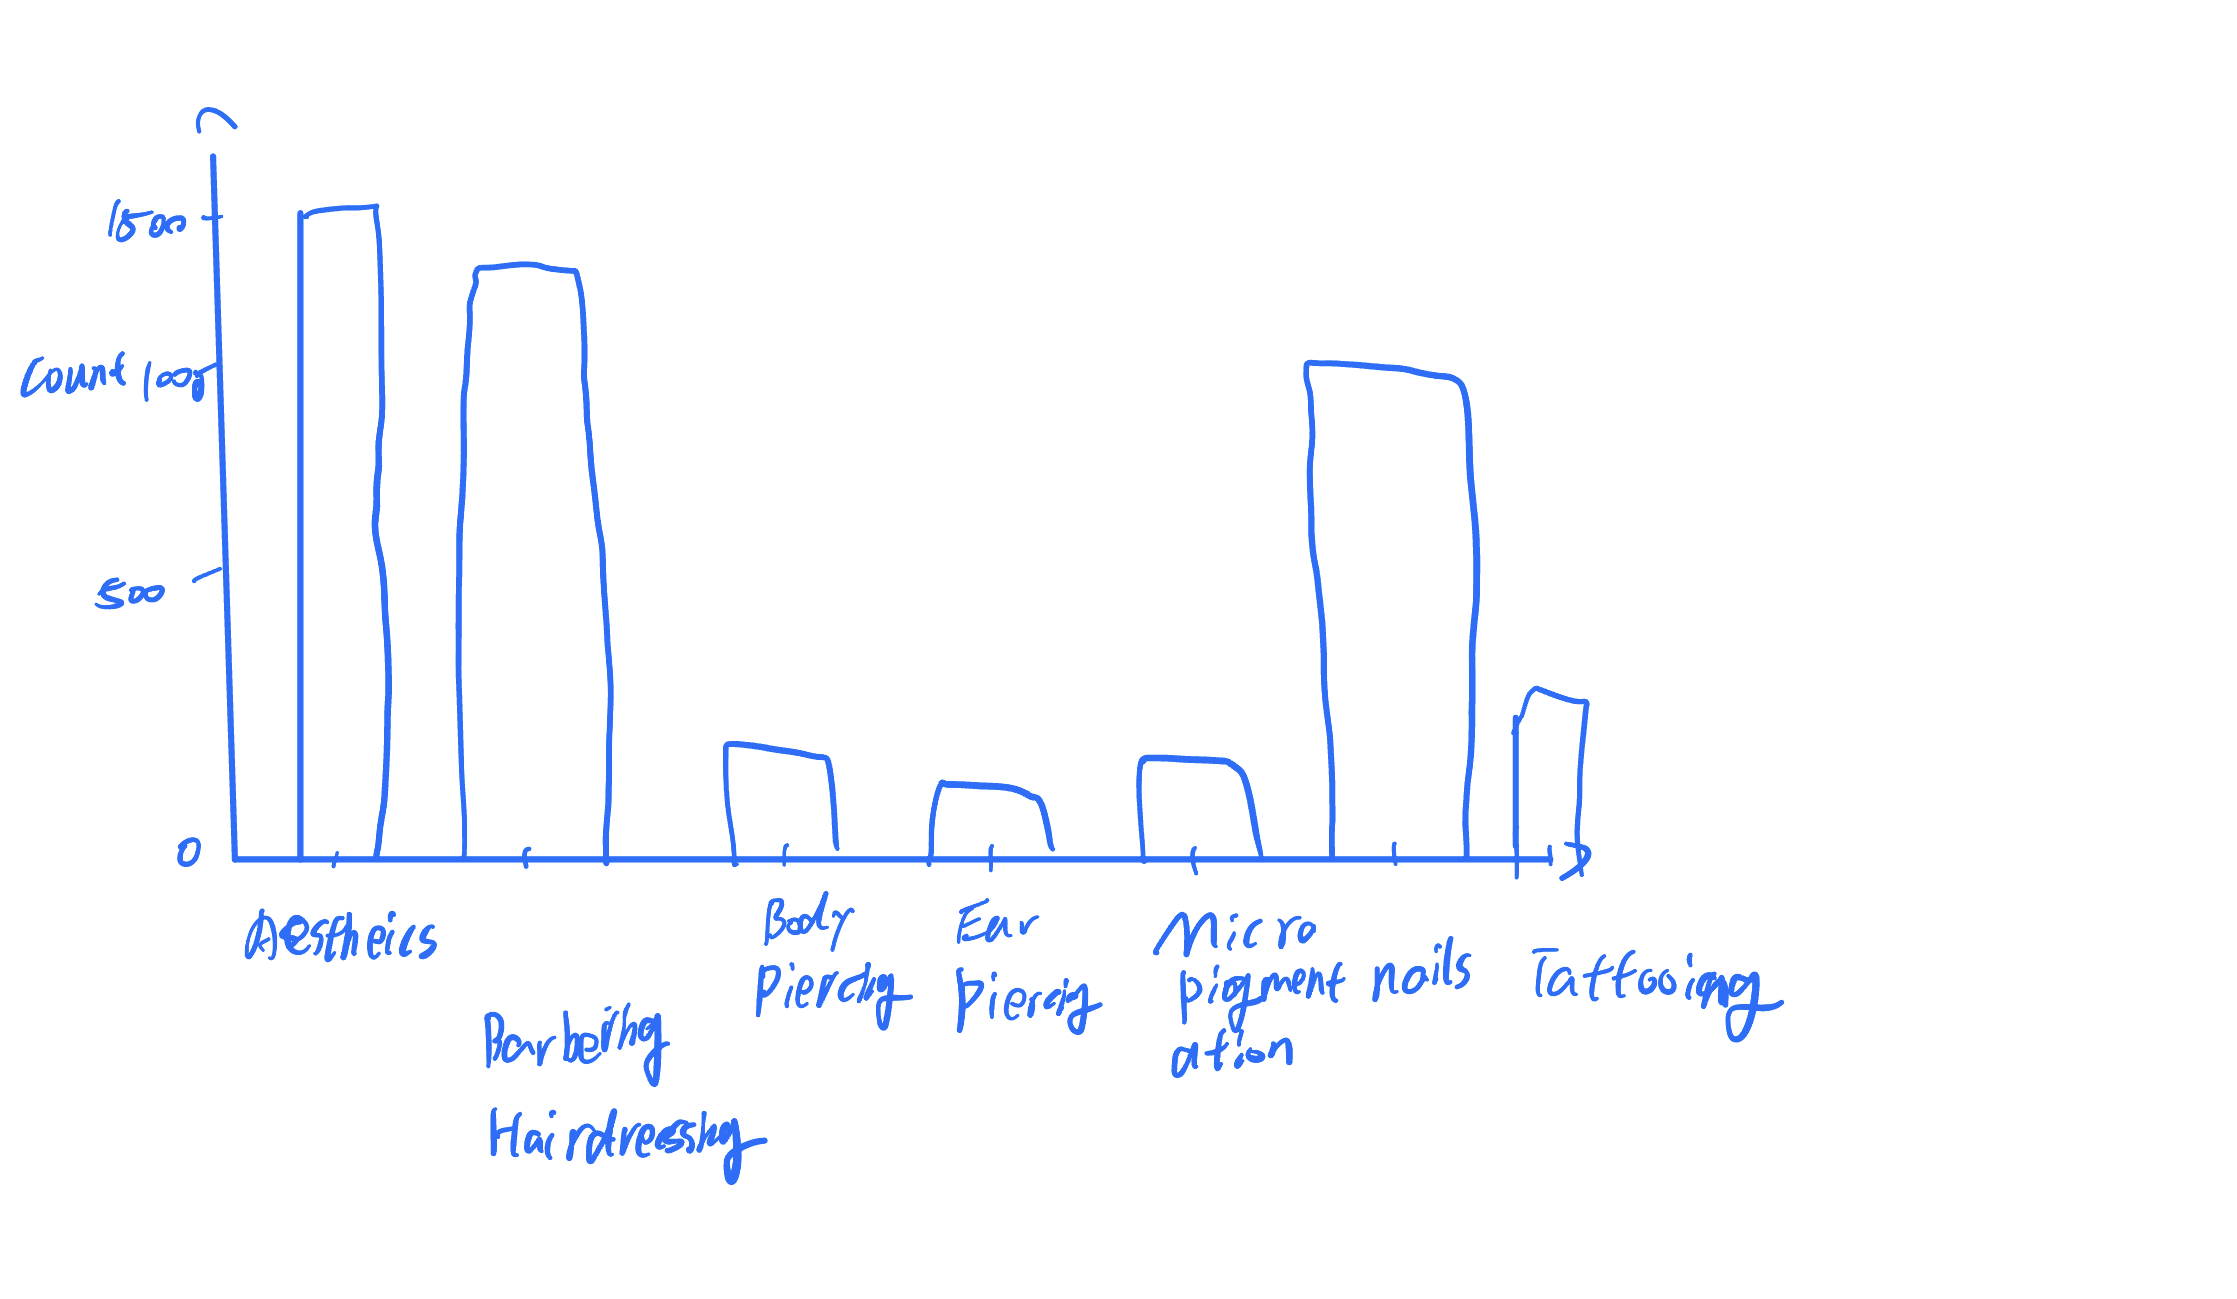 1500
Count 1000
500
0
Aestheics
Barbering
Hairdressing
Body
Piercing
Ear
Piercing
Micro
pigment
ation
nails
Tattooing